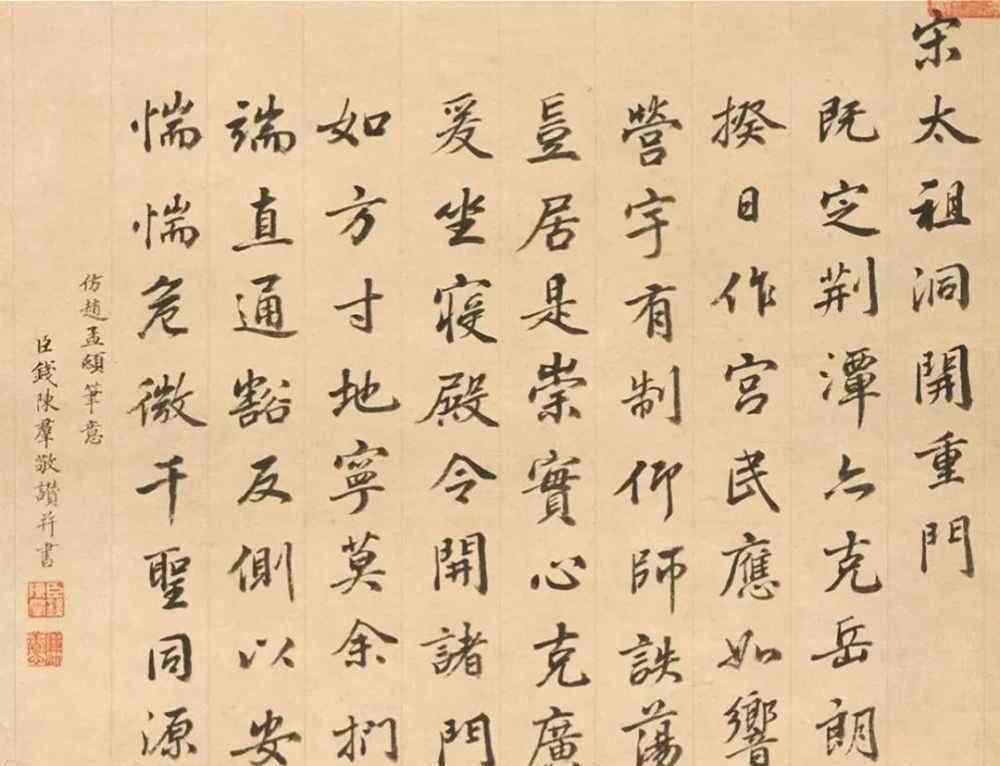 宋太祖洞開重門
既定荊潭亦克岳朗
揆日作宮民應如響
營宇有制仰師詄蕩
豈居是崇實心克廣
爰坐寢殿令開諸門
如方寸地寧莫余捫
端直通豁反側以安
惴惴危微千聖同源
仿趙孟頫筆意
臣錢陳羣敬讚并書